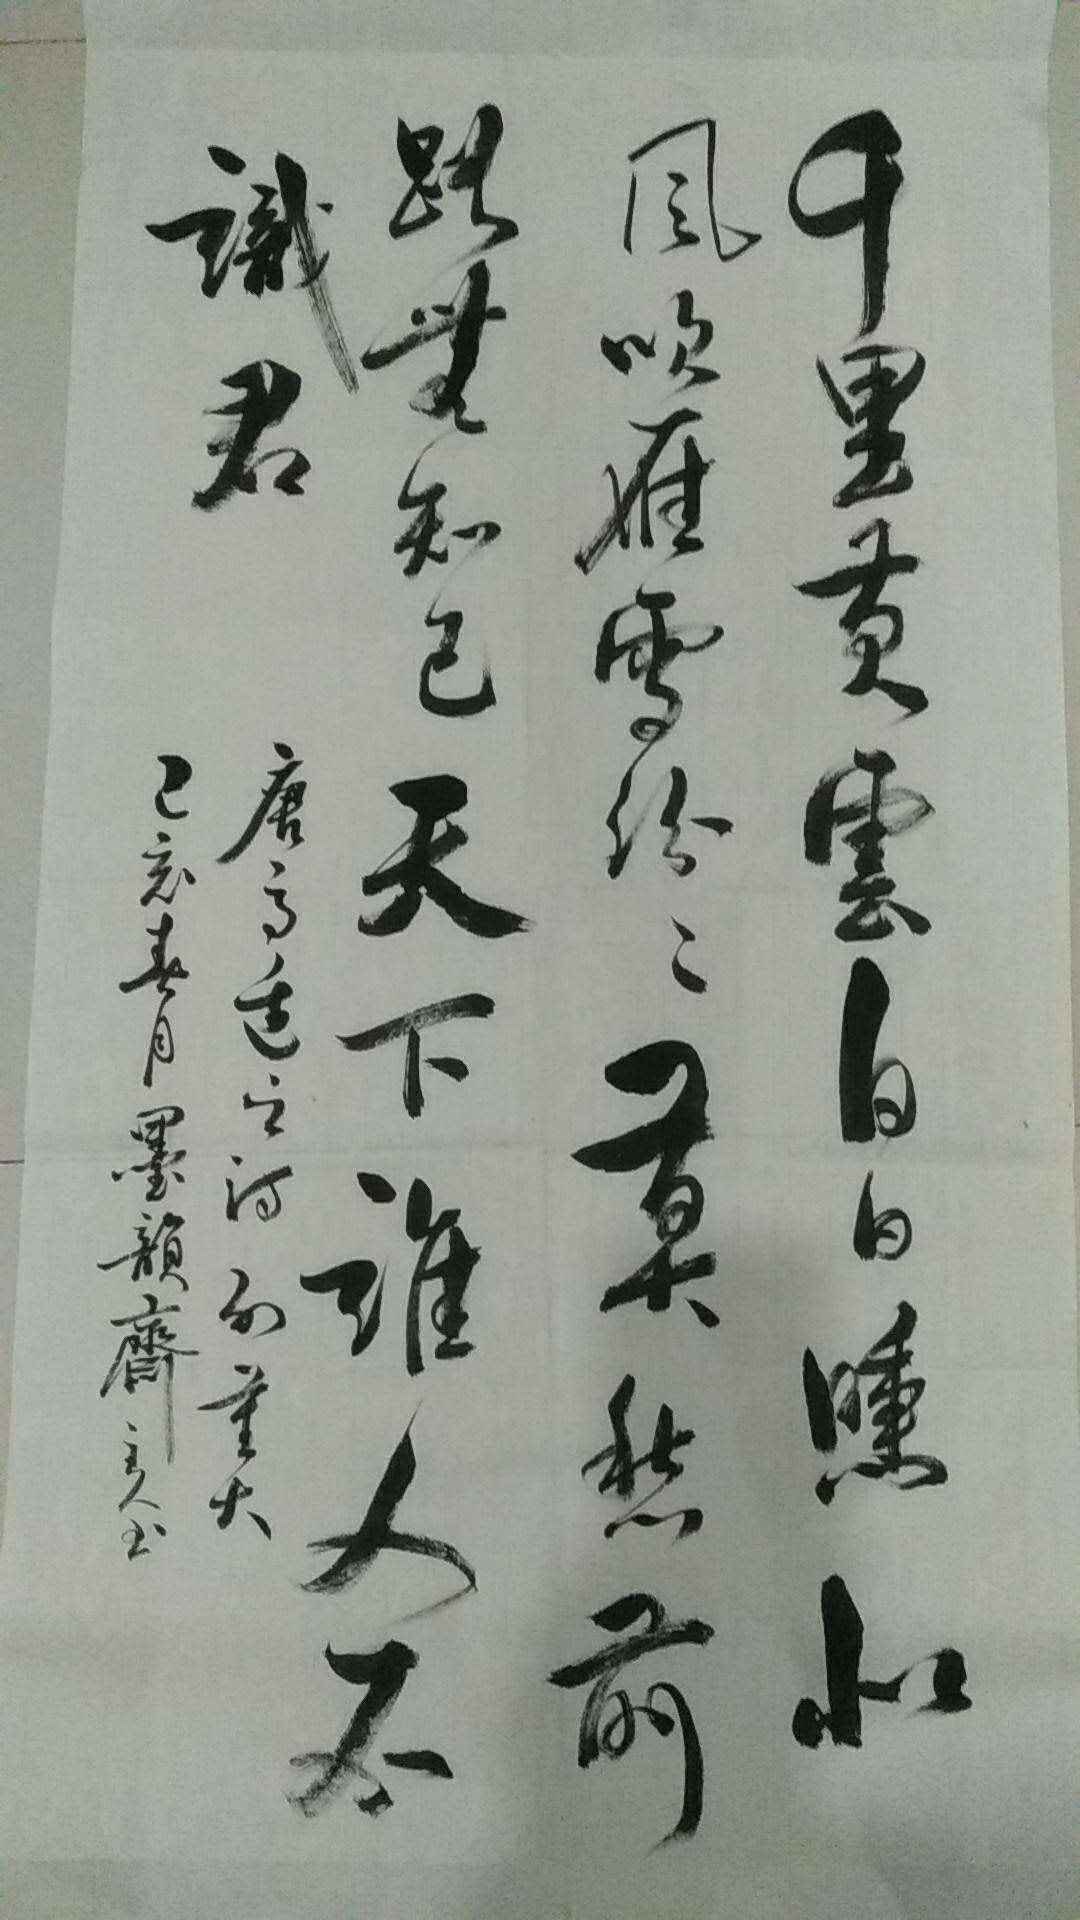 千里黄雲白日曛北
風吹雁雪紛〻莫愁前
路無知己天下誰人不
識君
唐高適之詩別董大
己亥春月墨韻齋主人书